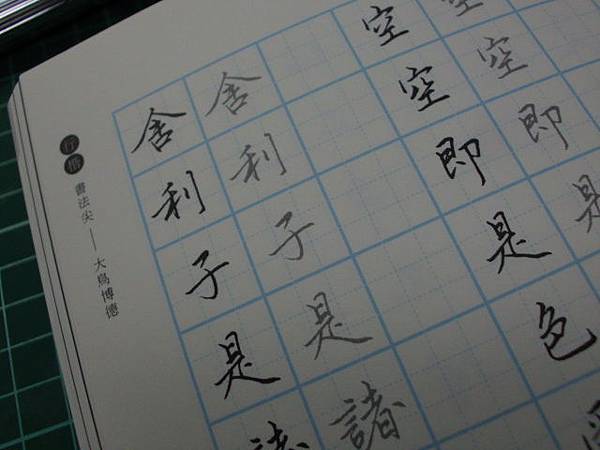 空空即是
空空即是色
舍利子是諸
舍利子是諸
行楷 書法尖——大鳥博德